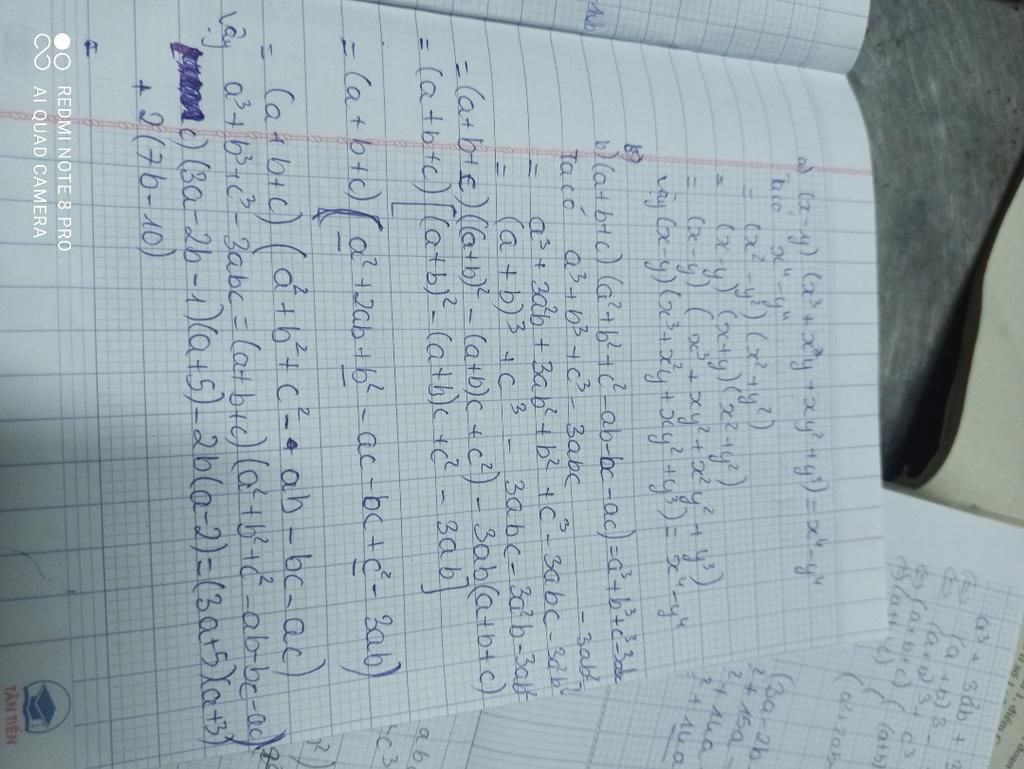 a) (x-y) (x³ + x²y + xy² + y³) = x⁴ - y⁴
Ta có x⁴ - y⁴
= (x² - y²) (x² + y²)
= (x - y) (x + y) (x² + y²)
= (x - y) ( x³ + xy² + x²y² + y³)
Vậy (x - y) (x³ + x²y + xy² + y³) = x⁴ - y⁴
b) (a + b + c) (a² + b² + c² - ab - bc - ac) = a³ + b³ + c³ - 3abc
Ta có a³ + b³ + c³ - 3abc
= a³ + 3a²b + 3ab² + b² + c³ - 3abc - 3a²b - 3ab²
= (a + b)³ + c³ - 3abc - 3a²b - 3ab²
= (a + b + c) ((a + b)² - (a + b)c + c²) - 3ab(a + b + c)
= (a + b + c) [(a + b)² - (a + b)c + c² - 3ab]
= (a + b + c) (a² + 2ab + b² - ac - bc + c² - 3ab)
= (a + b + c) (a² + b² + c² - ab - bc - ac)
Vậy a³ + b³ + c³ - 3abc = (a + b + c) (a² + b² + c² - ab - bc - ac)
c) (3a - 2b - 1) (a + 5) - 2b(a - 2) = (3a + 5) (a + 3)
+ 2(7b - 10)
TÂN TIẾN
a³ + 3a²b +
(a + b)³ -
(a + b)³ + c³
(a + b + c) ( (a + b)
(3a - 2b
REDMI NOTE 8 PRO
AI QUAD CAMERA